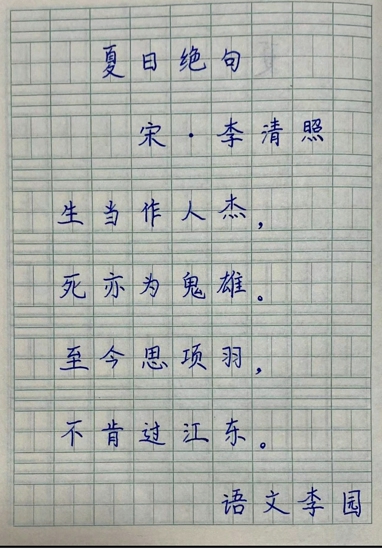 夏日绝句
宋·李清照
生当作人杰，
死亦为鬼雄。
至今思项羽，
不肯过江东。
语文李园